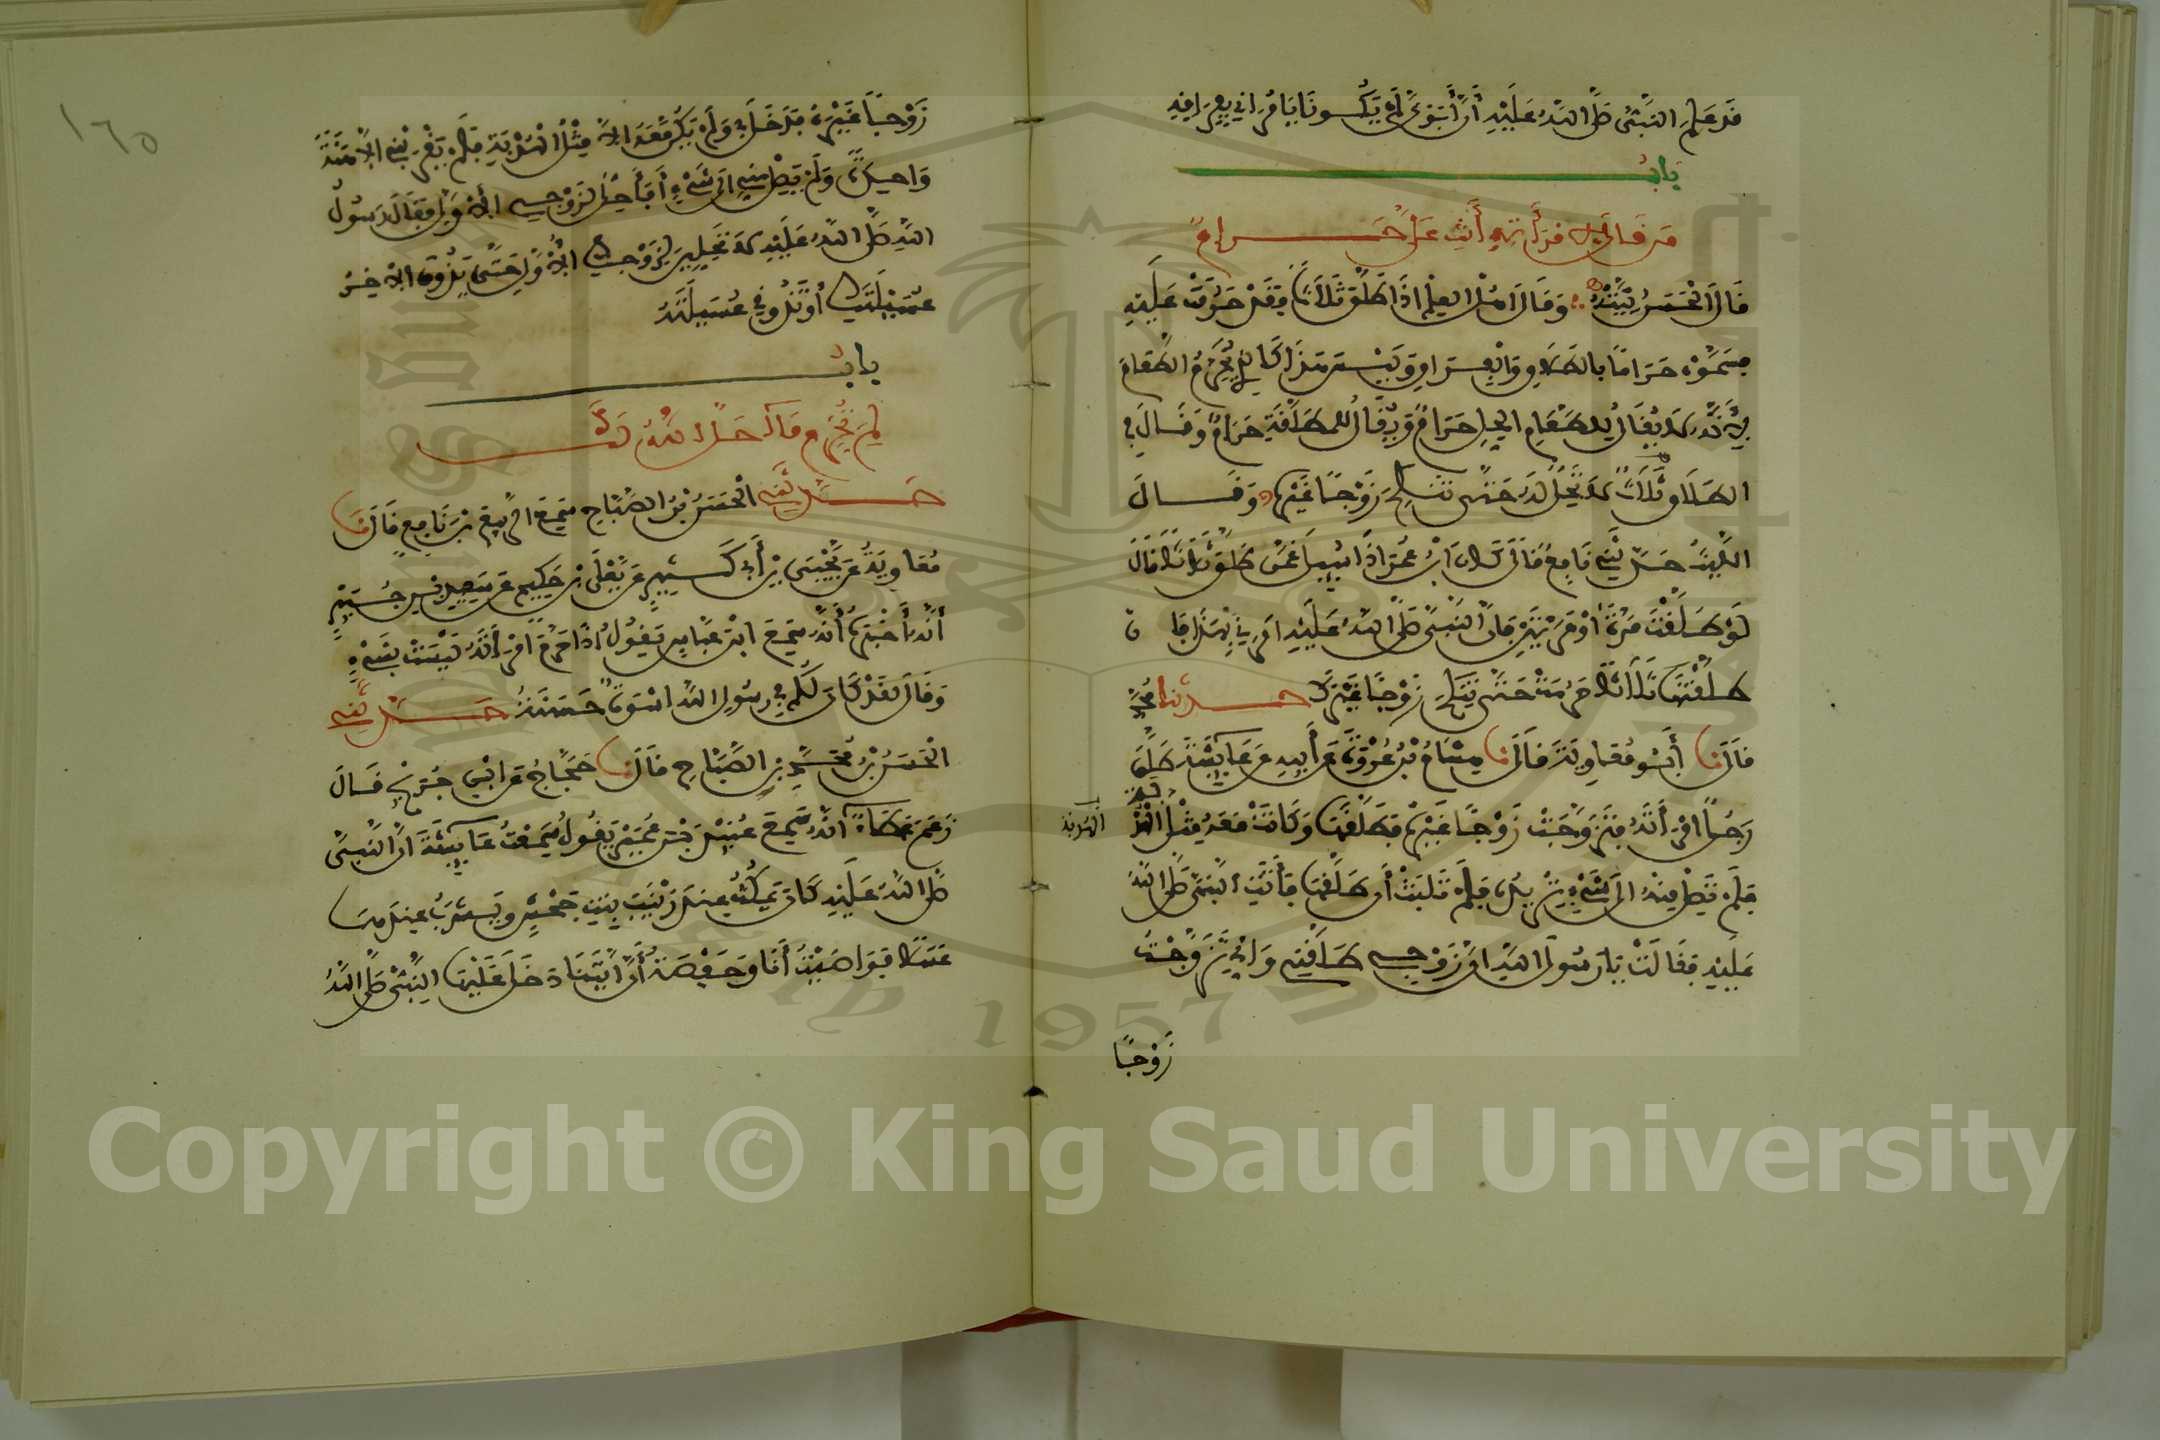 قد علم النبي صلى الله عليه أن أبوي لم يكونا يامراني بفراقه
باب
من قال لامرأته أنت علي حرام
قال الحسن نيته وقال اهل العلم اذا طلق ثلاثا فقد حرمت عليه
فسموه حراما بالطلاق والفراق وليس هذا كالذي يحرم الطعام
لأنه لا يقال لطعام الحل حرام ويقال للمطلقة حرام وقال في
الطلاق ثلاثا لا تحل له حتى تنكح زوجا غيره وقال
الليث حدثني نافع قال كان ابن عمر اذا سيل عمن طلق ثلاثا قال
لو طلقت مرة او مرتين فان النبي صلى الله عليه امرني بهذا فان
طلقتها ثلاثا حرمت حتى تنكح زوجا غيرك حدثنا محمد
قال نا أبو معاوية قال نا هشام بن عروة عن أبيه عن عايشة طلق
رجل امرأته فتزوجت زوجا غيره فطلقها وكانت معه مثل الهدبة
الهدبة
فلم تصل منه الى شيء تريده فلم تلبث أن طلقها فأتت النبي صلى الله
عليه فقالت يا رسول الله ان زوجي طلقني واني تزوجت
زوجا
١٦٥
زوجا غيره فدخل بي ولم يكن معه الا مثل الهدبة فلم يقربني الا هنة
واحدة ولم يصل مني الى شيء أفأحل لزوجي الأول فقال رسول
الله صلى الله عليه لا تحلين لزوجك الأول حتى يذوق الاخر
عسيلتك أو تذوقي عسيلته
باب
لم تحرم ما أحل الله لك
حدثني الحسن بن الصباح سمع الربيع بن نافع قال نا
معاوية عن يحيى بن أبي كثير عن يعلى بن حكيم عن سعيد بن جبير
أنه أخبره أنه سمع ابن عباس يقول اذا حرم امرأته ليست بشيء
وقال لقد كان لكم في رسول الله اسوة حسنة حدثني
الحسن بن محمد بن الصباح قال نا حجاج عن ابن جريج قال
زعم عطاء أنه سمع عبيد بن عمير يقول سمعت عايشة ان النبي
صلى الله عليه كان يمكث عند زينب بنت جحش ويشرب عندها
عسلا فتواصيت أنا وحفصة أن أيتنا دخل عليها النبي صلى الله